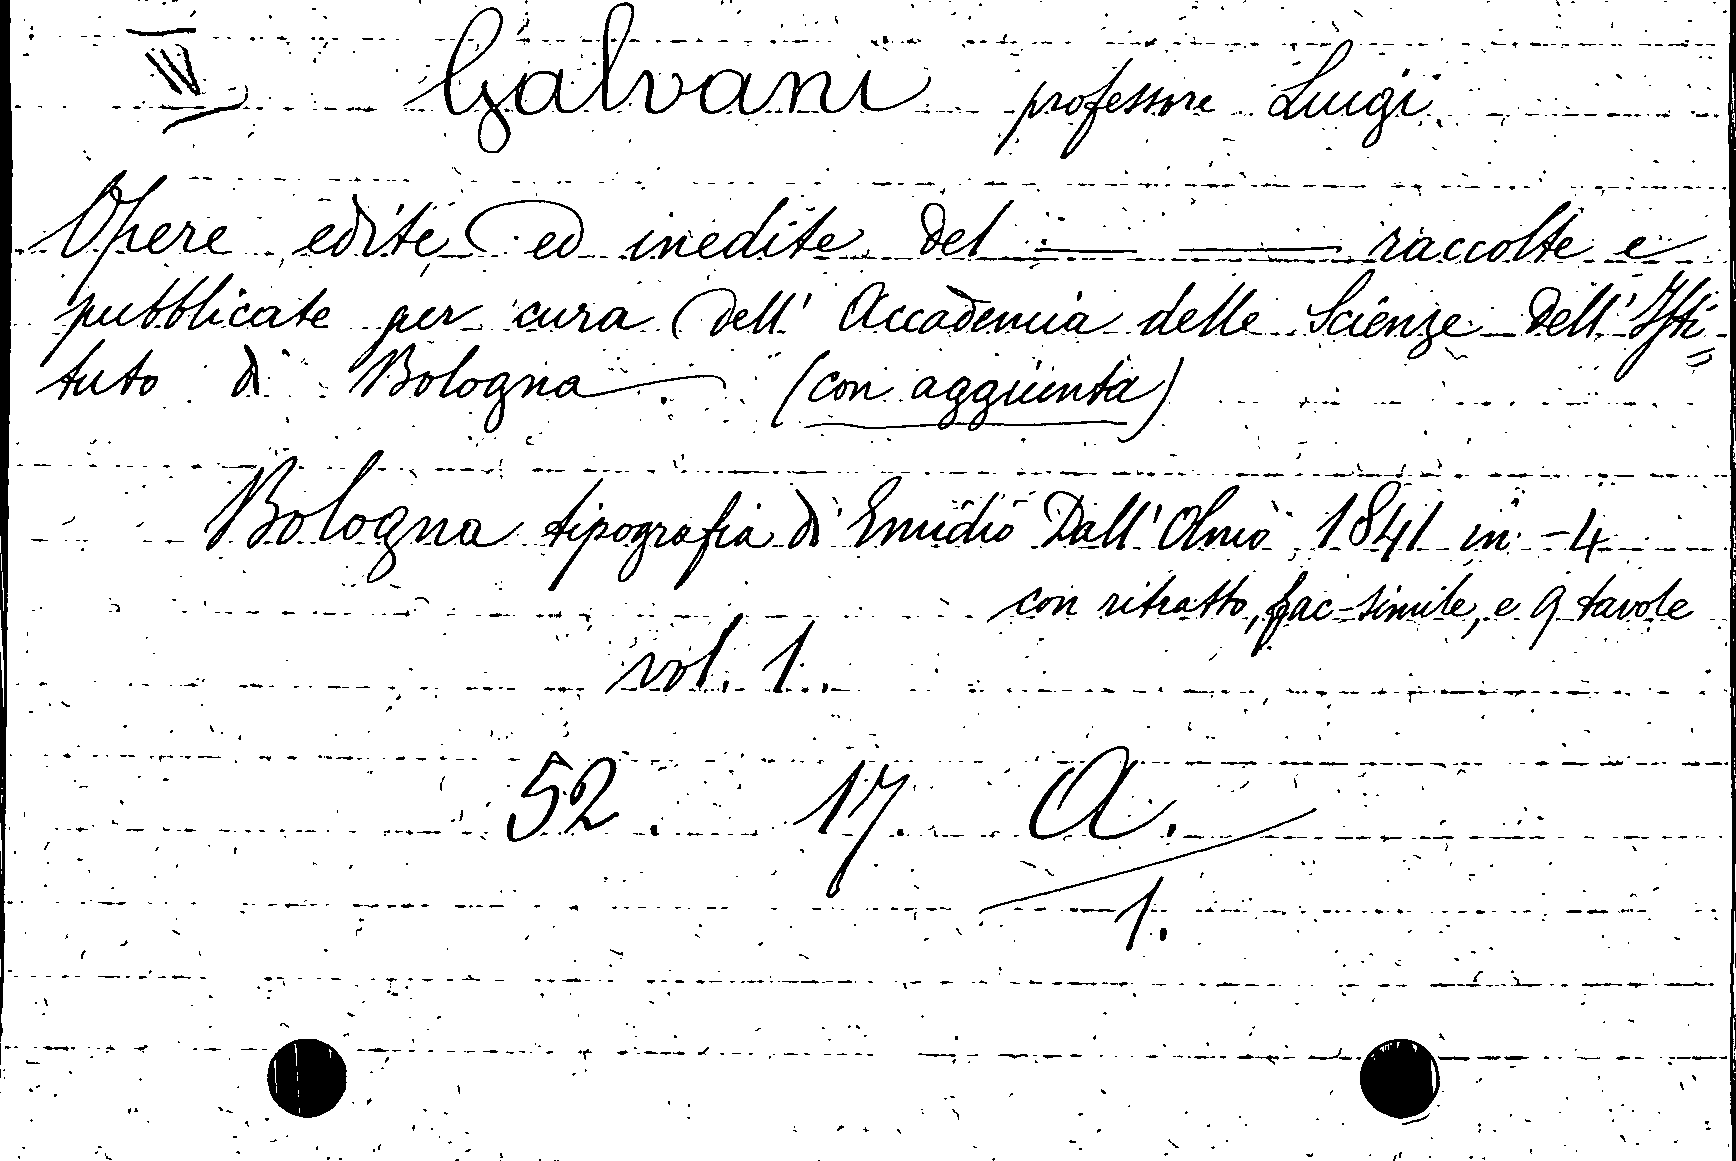 IV Galvani professore Luigi
Opere edite ed inedite del — — raccolte e
pubblicate per cura dell' Accademia delle Scienze dell' Isti=
tuto di Bologna. (con aggiunta)
Bologna tipografia di Emidio Dall'Olmo 1841 in-4
con ritratto, fac-simile, e 9 tavole
vol. 1.
52. 17. A.
1.